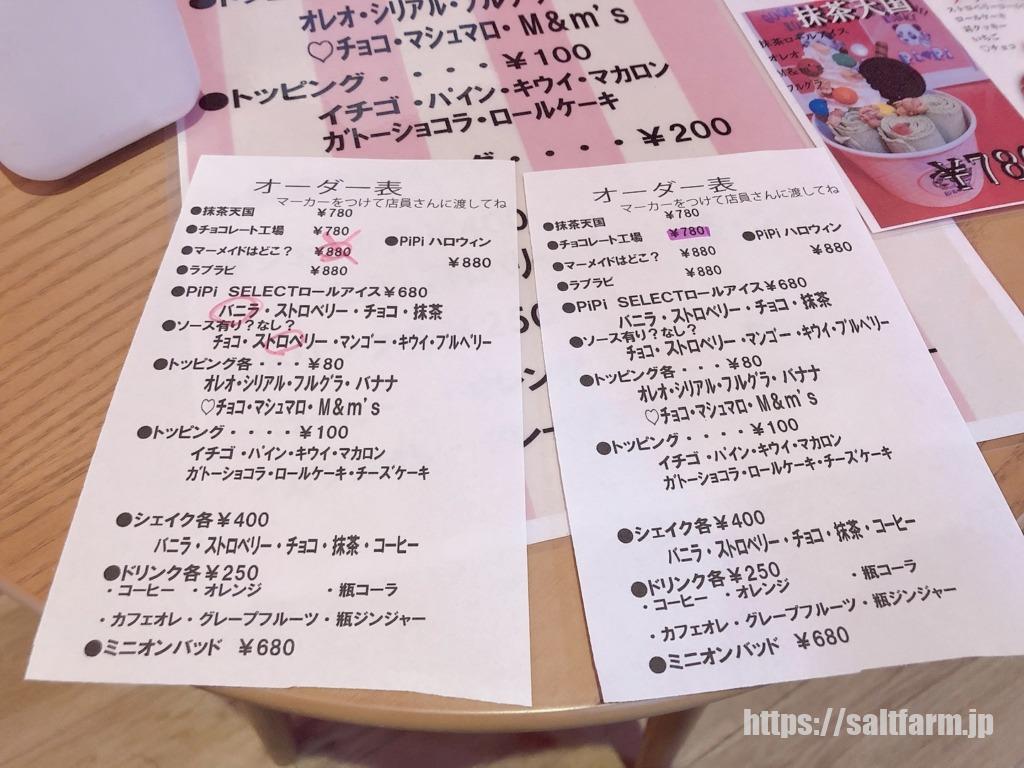 オレオ・シリアル・フルグラ・バナナ
♡チョコ・マシュマロ・M&m's
●トッピング・・・・¥100
イチゴ・パイン・キウイ・マカロン
ガトーショコラ・ロールケーキ
・・・・¥200
抹茶天国
抹茶ロールアイス、
オレオ
M&m's
フルグラ
¥780
ロールケーキ
いちご
オーダー表
マーカーをつけて店員さんに渡してね
●抹茶天国 ¥780
●チョコレート工場 ¥780
●マーメイドはどこ? ¥880
●ラブラビ ¥880
●PiPi ハロウィン
¥880
●PiPi SELECTロールアイス¥680
バニラ・ストロベリー・チョコ・抹茶
●ソース有り?なし?
チョコ・ストロベリー・マンゴー・キウイ・ブルベリー
●トッピング各・・・¥80
オレオ・シリアル・フルグラ・バナナ
♡チョコ・マシュマロ・M&m's
●トッピング・・・・¥100
イチゴ・パイン・キウイ・マカロン
ガトーショコラ・ロールケーキ・チーズケーキ
●シェイク各¥400
バニラ・ストロベリー・チョコ・抹茶・コーヒー
●ドリンク各¥250
・コーヒー ・オレンジ ・瓶コーラ
・カフェオレ・グレープフルーツ・瓶ジンジャー
●ミニオンバッド ¥680
オーダー表
マーカーをつけて店員さんに渡してね
●抹茶天国 ¥780
●チョコレート工場 ¥780
●マーメイドはどこ? ¥880
●ラブラビ ¥880
●PiPi ハロウィン
¥880
●PiPi SELECTロールアイス¥680
バニラ・ストロベリー・チョコ・抹茶
●ソース有り?なし?
チョコ・ストロベリー・マンゴー・キウイ・ブルベリー
●トッピング各・・・¥80
オレオ・シリアル・フルグラ・バナナ
♡チョコ・マシュマロ・M&m's
●トッピング・・・・¥100
イチゴ・パイン・キウイ・マカロン
ガトーショコラ・ロールケーキ・チーズケーキ
●シェイク各¥400
バニラ・ストロベリー・チョコ・抹茶・コーヒー
●ドリンク各¥250
・コーヒー ・オレンジ ・瓶コーラ
・カフェオレ・グレープフルーツ・瓶ジンジャー
●ミニオンバッド ¥680
https://saltfarm.jp